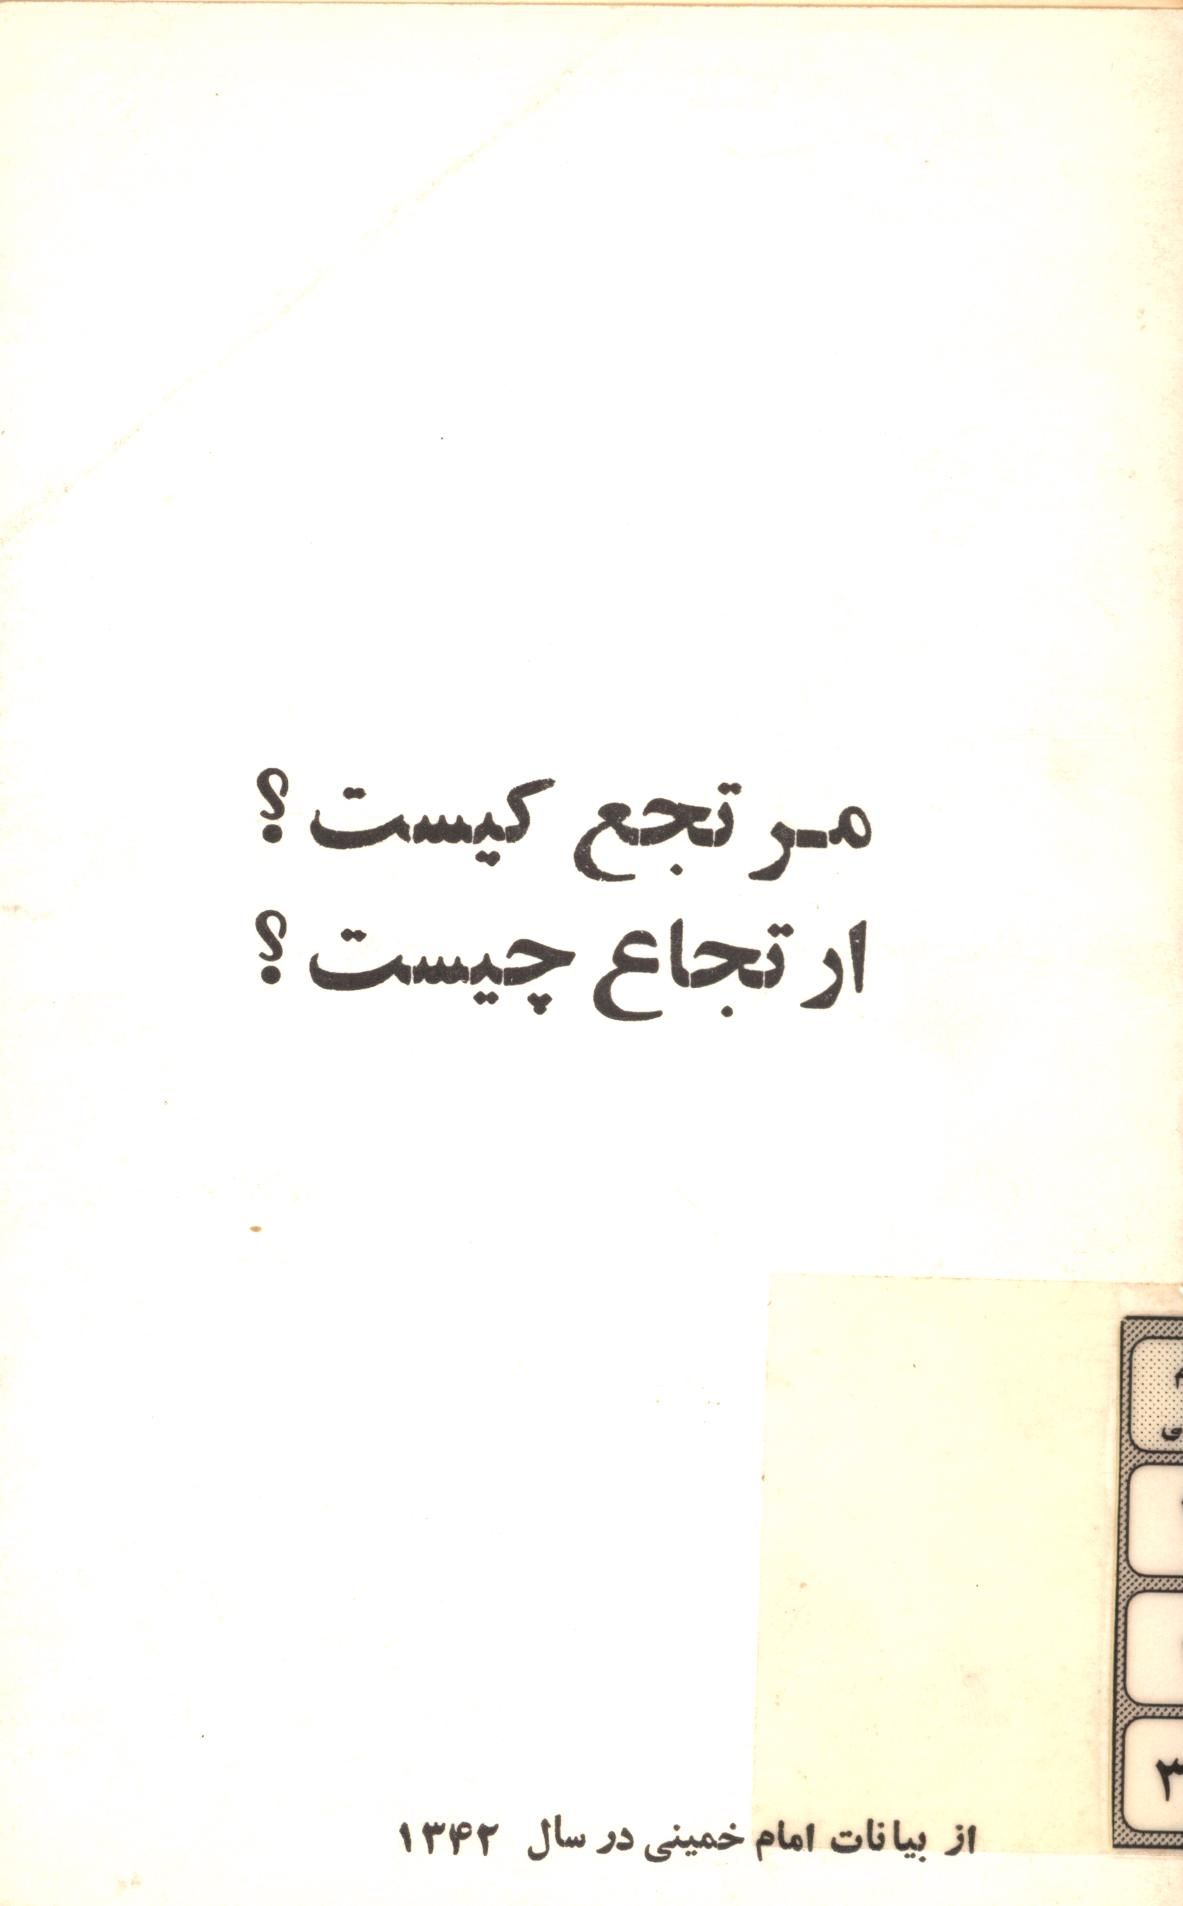 مرتجع کیست؟
ارتجاع چیست؟
۳
از بیانات امام خمینی در سال ۱۳۴۲